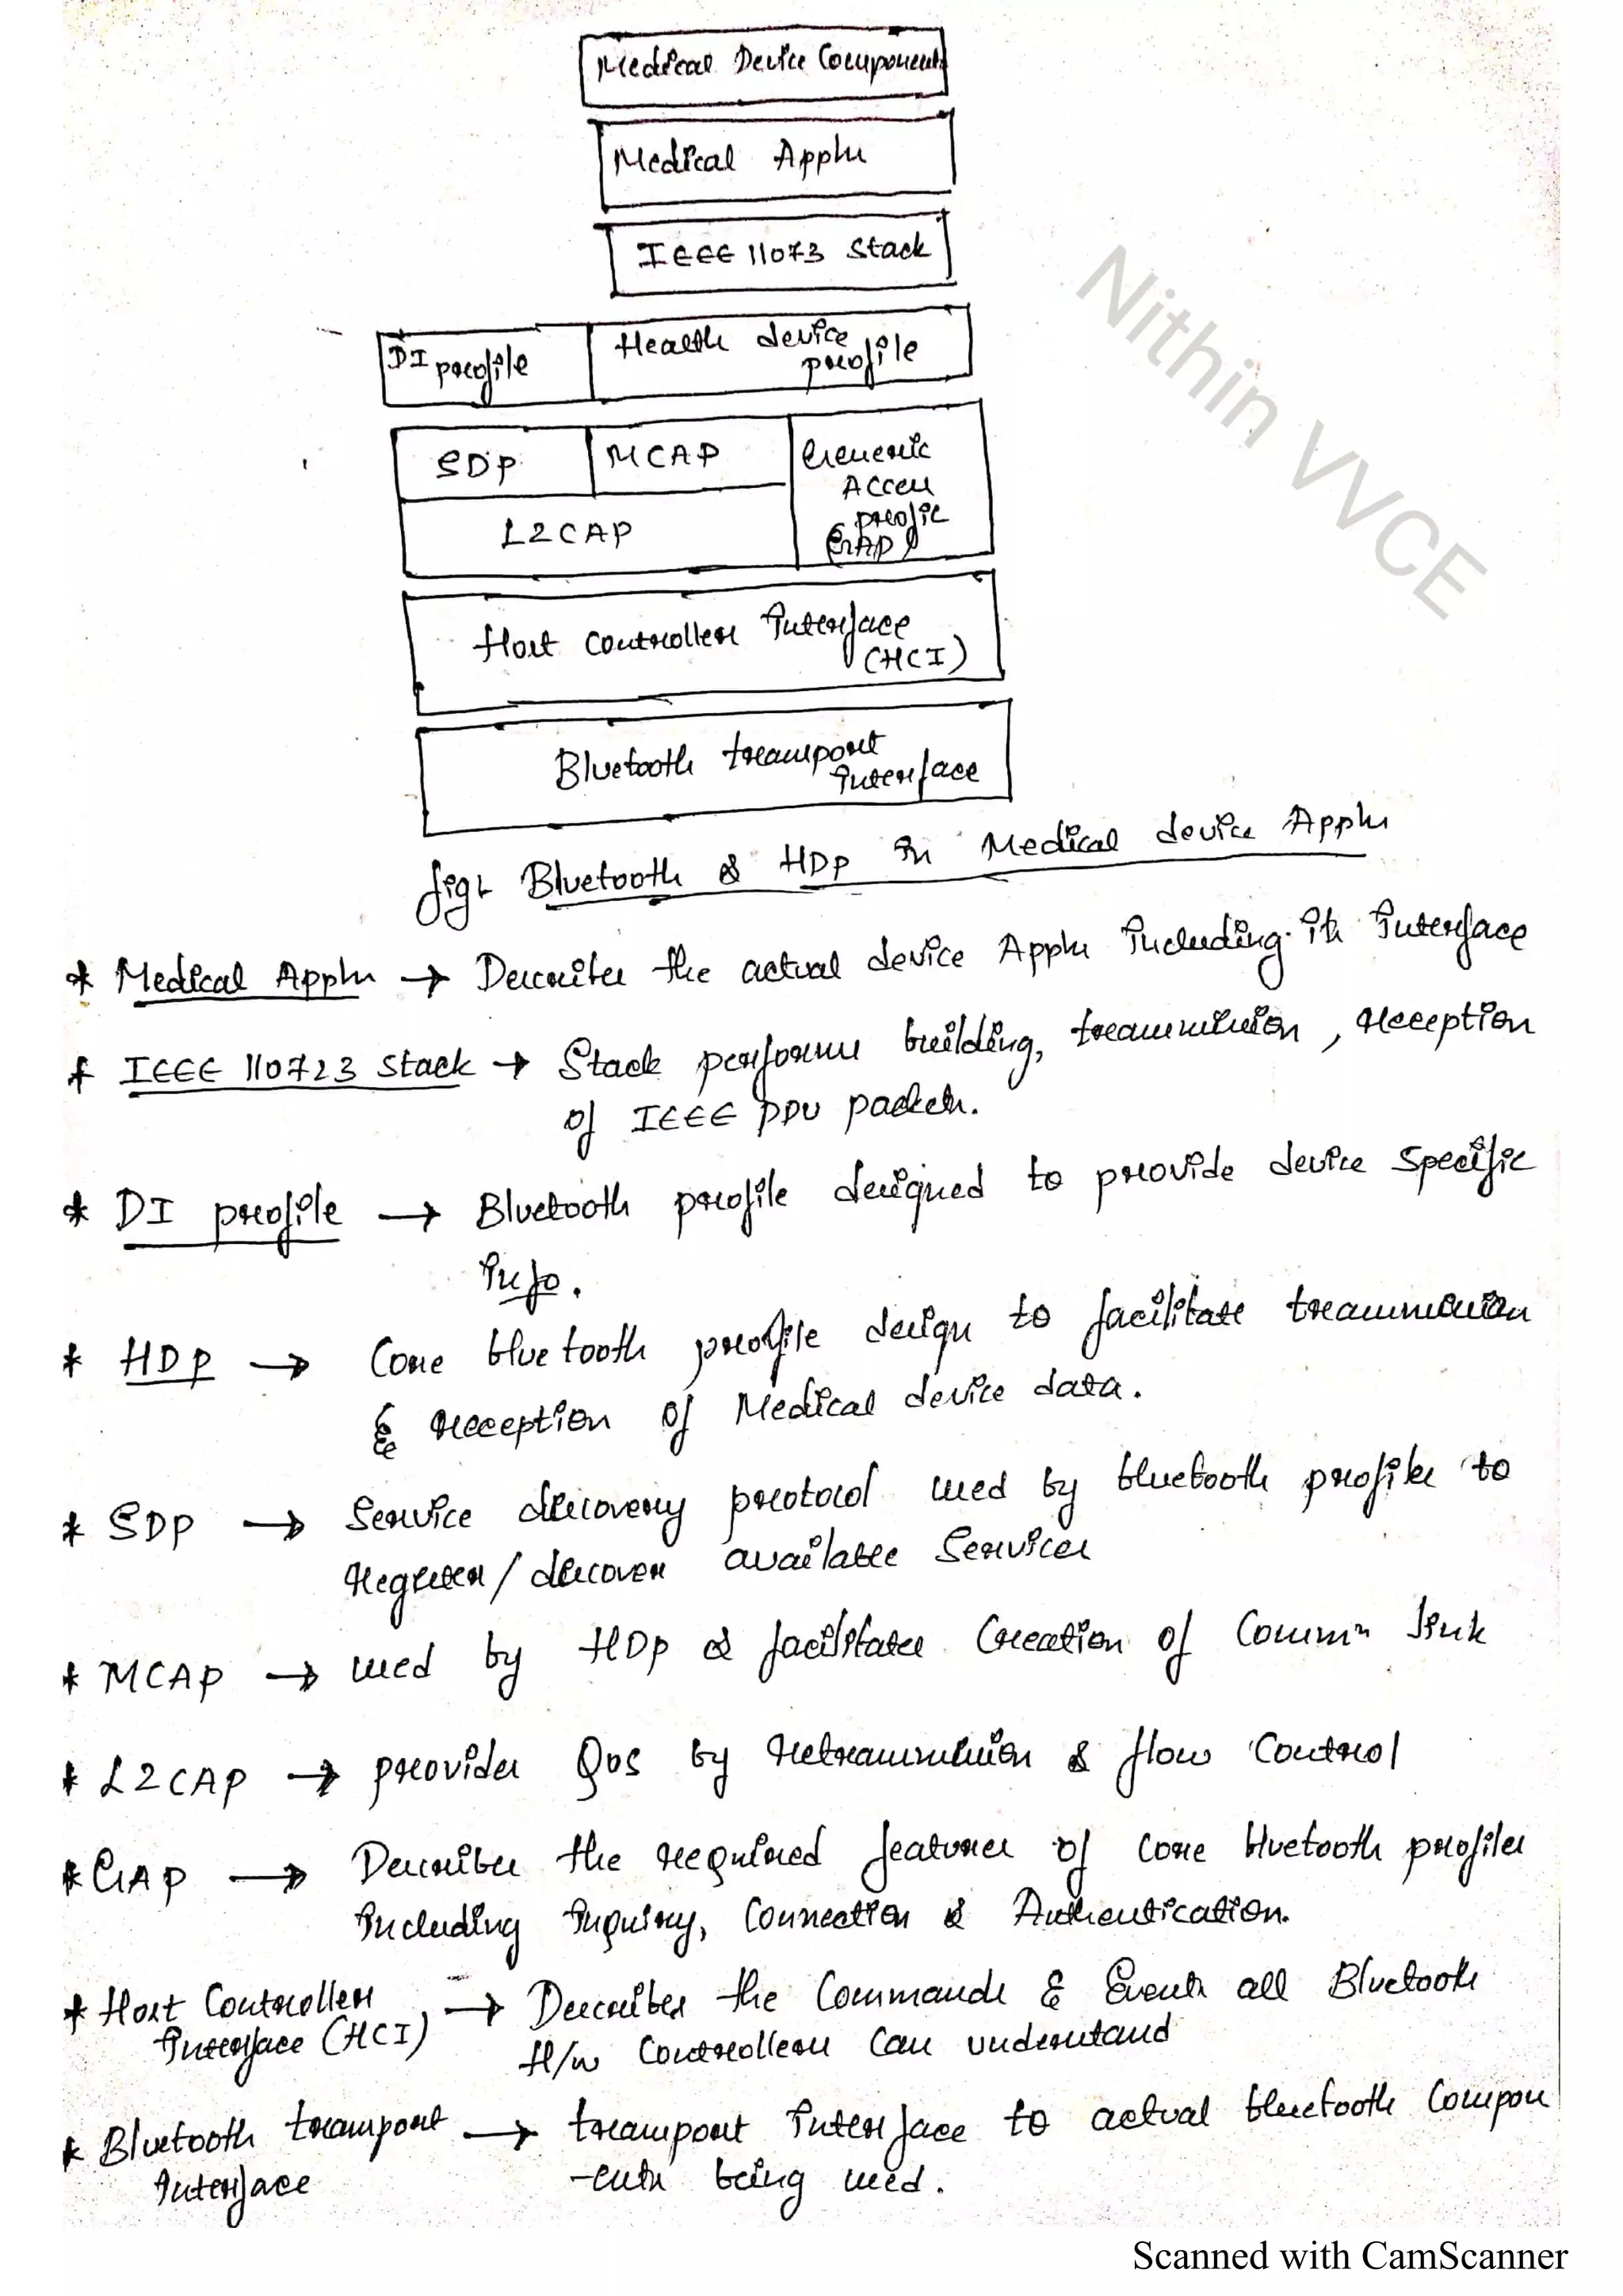 Medical Device Components
Medical Appln
IEEE 11073 Stack
DI profile
Health device
profile
SDP
MCAP
Generic
Access
profile
GAP
L2CAP
Host Controller Interface
(HCI)
Bluetooth transport
Interface
fig:- Bluetooth & HDP in Medical device Appln
* Medical Appln → Describes the actual device Appln including its interface
* IEEE 110723 Stack → Stack performs building, transmission, reception
of IEEE PDU packets.
* DI profile → Bluetooth profile designed to provide device specific
Info.
* HDP → Core bluetooth profile design to facilitate transmission
& reception of Medical device data.
* SDP → Service discovery protocol used by bluetooth profiles to
register/discover available services
* MCAP → used by HDP & facilitates Creation of Commn link
* L2CAP → provides QoS by retransmission & flow control
* GAP → Describes the required features of core bluetooth profiles
including inquiry, Connection & Authentication.
* Host Controller → Describes the Commands & Events all Bluetooth
Interface (HCI)
H/w Controllers Can understand
* Bluetooth transport → transport interface to actual bluetooth Compon
Interface
-ents being used.
Nithin VVCE
Scanned with CamScanner